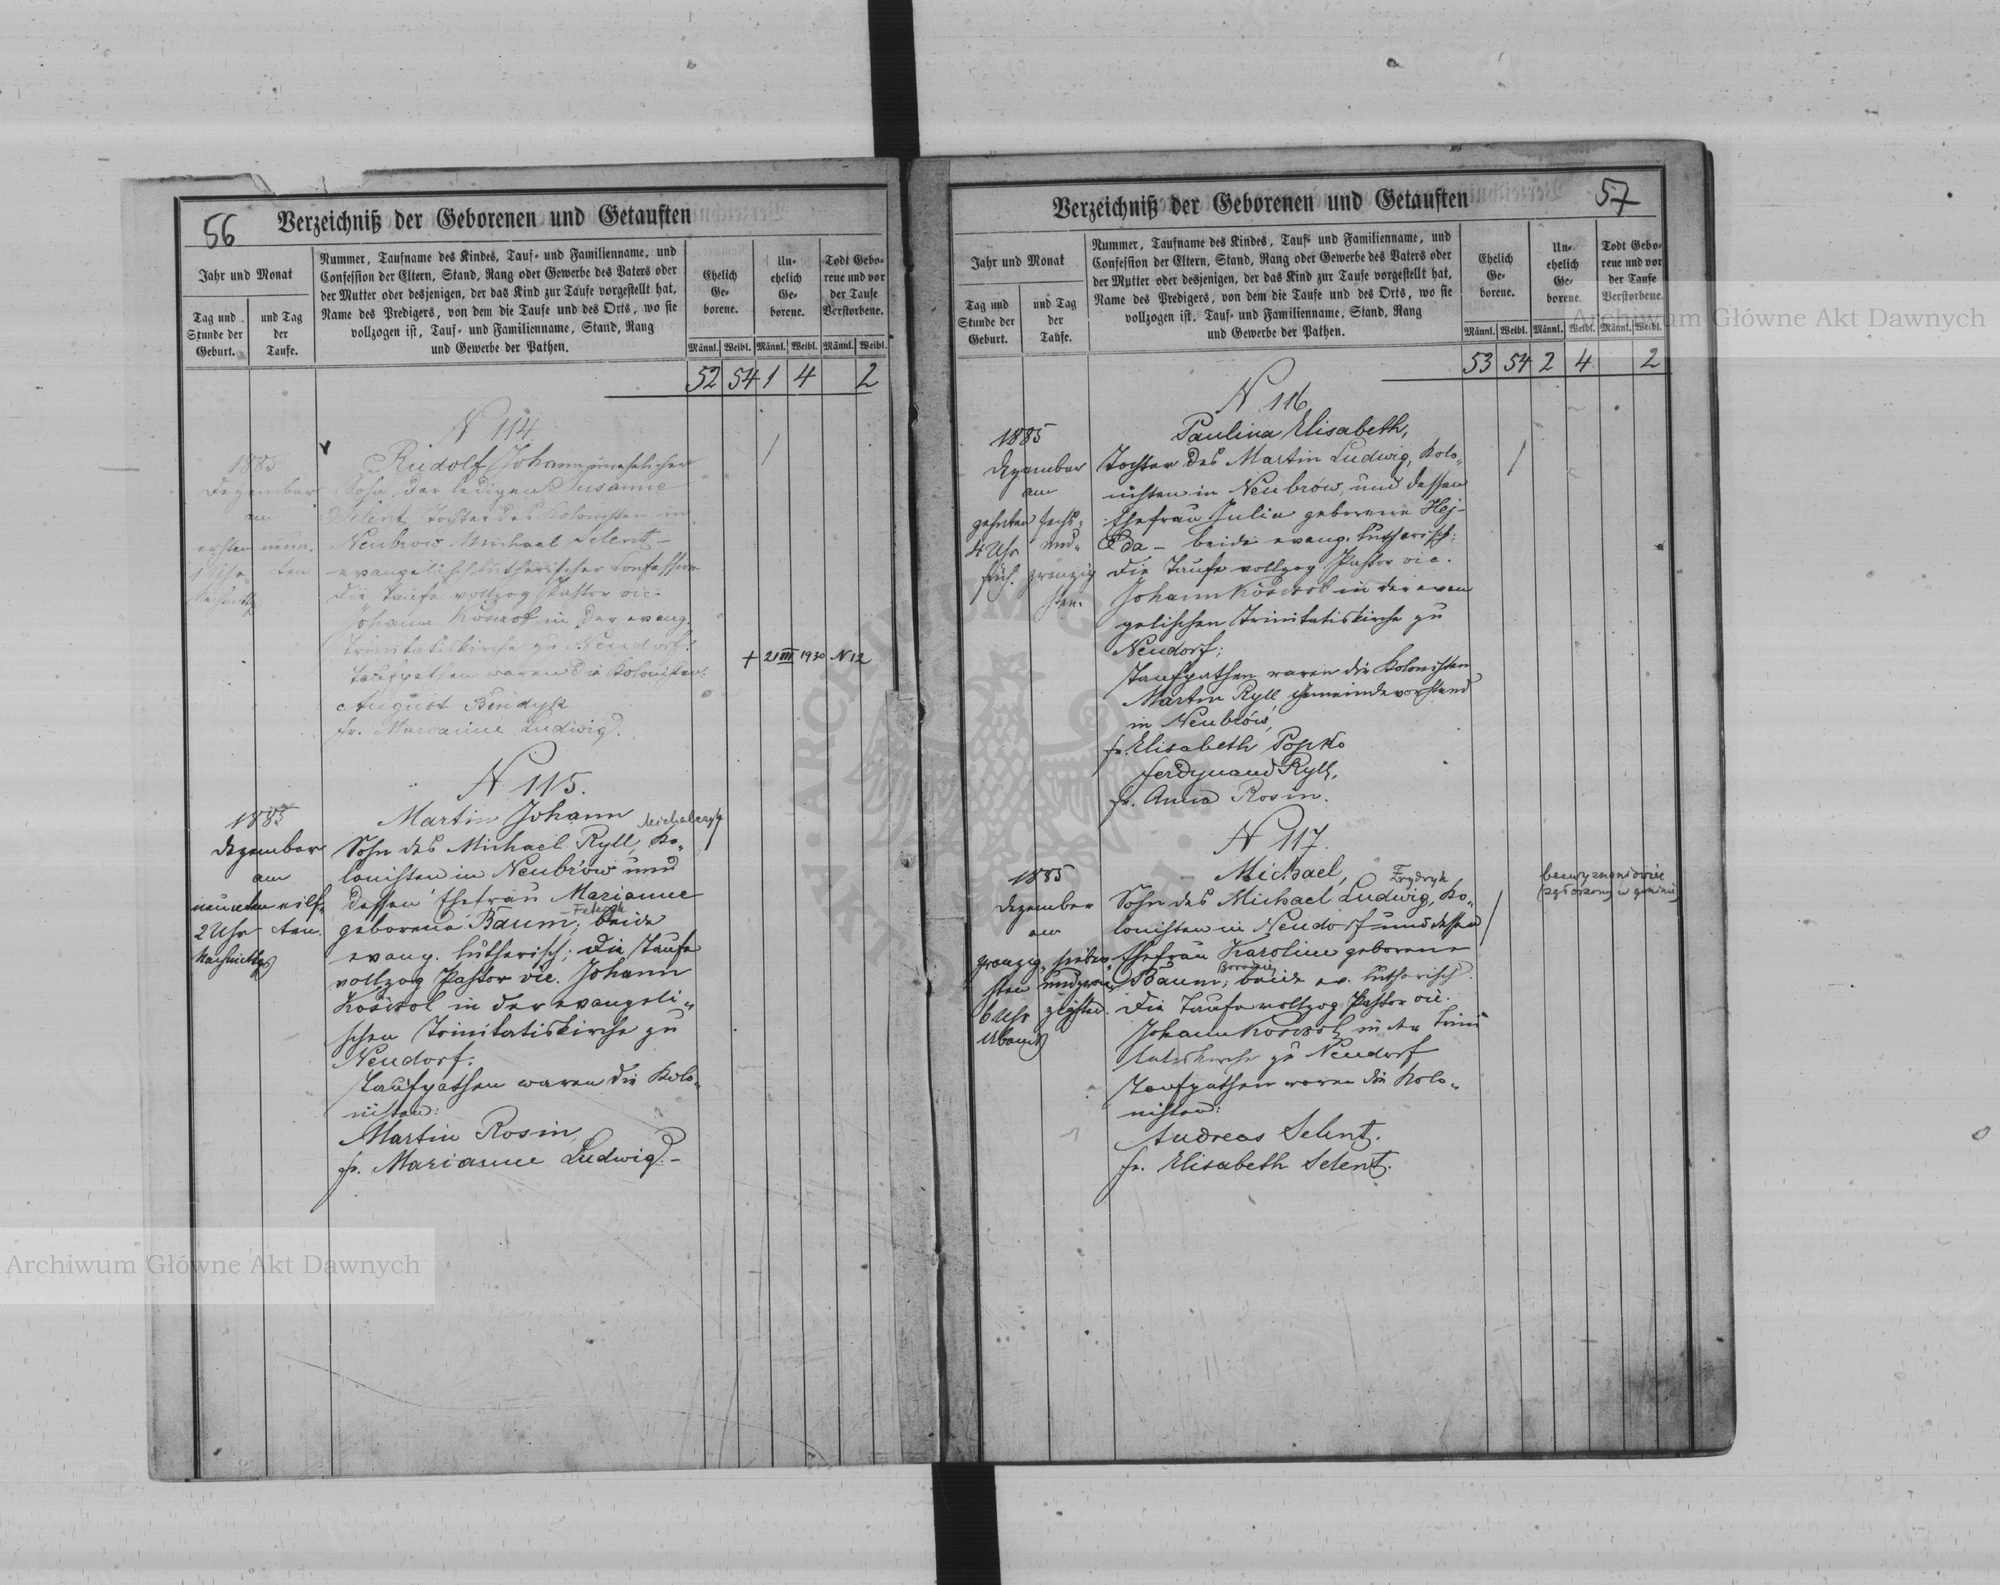 56
Verzeichniß der Geborenen und Getauften
Jahr und Monat
Tag und Stunde der Geburt.
und Tag der Taufe.
Nummer, Taufname des Kindes, Tauf- und Familienname, und
Confession der Eltern, Stand, Rang oder Gewerbe des Vaters oder
der Mutter oder desjenigen, der das Kind zur Taufe vorgestellt hat,
Name des Predigers, von dem die Taufe und des Orts, wo sie
vollzogen ist, Tauf- und Familienname, Stand, Rang
und Gewerbe der Pathen.
Ehelich Ge-borene.
Un-ehelich Ge-borene.
Todt Gebo-rene und vor der Taufe Verstorbene.
Männl. Weibl. Männl. Weibl. Männl. Weibl.
52 54 1 4 2
N 114
1885
Dezember
am
ersten neun-
ten
Rudolf Johann unehelicher
Sohn der ledigen Susanne
Selent Tochter des Kolonisten in
Neubrow Michael Selent -
evangelisch lutherischer Confession
Die Taufe vollzog Pastor vic.
Johann in der evang.
Trinitatiskirche zu Neudorf:
Taufpathen waren die Kolonisten:
August Bendyk
fr. Marianne Ludwig.
+ 21 III 1930 N 12
N 115.
1885
Dezember
am
neunten eilf-
2 Uhr ten
Nachmittag
Martin Johann
Sohn des Michael Ryll, Ko-
lonisten in Neubrów und
dessen Ehefrau Marianne
geborene Baum; beide
evang. lutherisch; Die Taufe
vollzog Pastor vic. Johann
in der evangeli-
schen Trinitatiskirche zu
Neudorf:
Taufpathen waren die Kolo-
nisten:
Martin Rosin,
fr. Marianne Ludwig. -
57
Verzeichniß der Geborenen und Getauften
Jahr und Monat
Tag und Stunde der Geburt.
und Tag der Taufe.
Nummer, Taufname des Kindes, Tauf- und Familienname, und
Confession der Eltern, Stand, Rang oder Gewerbe des Vaters oder
der Mutter oder desjenigen, der das Kind zur Taufe vorgestellt hat,
Name des Predigers, von dem die Taufe und des Orts, wo sie
vollzogen ist, Tauf- und Familienname, Stand, Rang
und Gewerbe der Pathen.
Ehelich Ge-borene.
Un-ehelich Ge-borene.
Todt Gebo-rene und vor der Taufe Verstorbene.
Männl. Weibl. Männl. Weibl. Männl. Weibl.
53 54 2 4 2
N 116
1885
Dezember
am
zehnten sechs-
4 Uhr und-
früh. zwanzig
sten.
Paulina Elisabeth,
Tochter des Martin Ludwig, Kolo-
nisten in Neubrów, und dessen
Ehefrau Julia geborene
beide evang. lutherisch;
Die Taufe vollzog Pastor vic.
Johann in der evan
gelischen Trinitatiskirche zu
Neudorf;
Taufpathen waren die Kolonisten
Martin Ryll, Gemeindevorstand
in Neubrów,
fr. Elisabeth Popko
Ferdynand Ryll,
fr. Anna Rosin.
N 117.
1885
Dezember
am
zwanzig- sieben
sten undzwan
6 Uhr zigsten.
Abends
Michael,
Fryderyk
Sohn des Michael Ludwig, Ko-
lonisten in Neudorf und dessen
Ehefrau Karoline geborene
Baum; beide ev. lutherisch.
Die Taufe vollzog Pastor vic.
Johann in der Trini
tatiskirche zu Neudorf
Taufpathen waren die Kolo-
nisten:
Andreas Selent.
fr. Elisabeth Selent.
bezwyznaniowiec
Archiwum Główne Akt Dawnych
Archiwum Główne Akt Dawnych